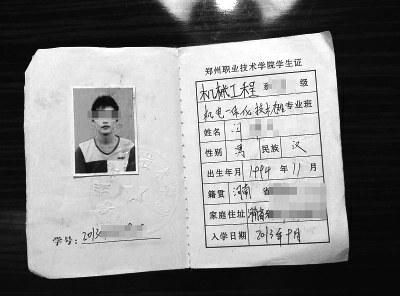 学号：2013
郑州职业技术学院学生证
机械工程 系 级
机电一体化技术 专业 班
姓名 闫
性别 男 民族 汉
出生年月 1994 年 11 月
籍贯 河南 省
家庭住址 河南省
入学日期 2013年9月